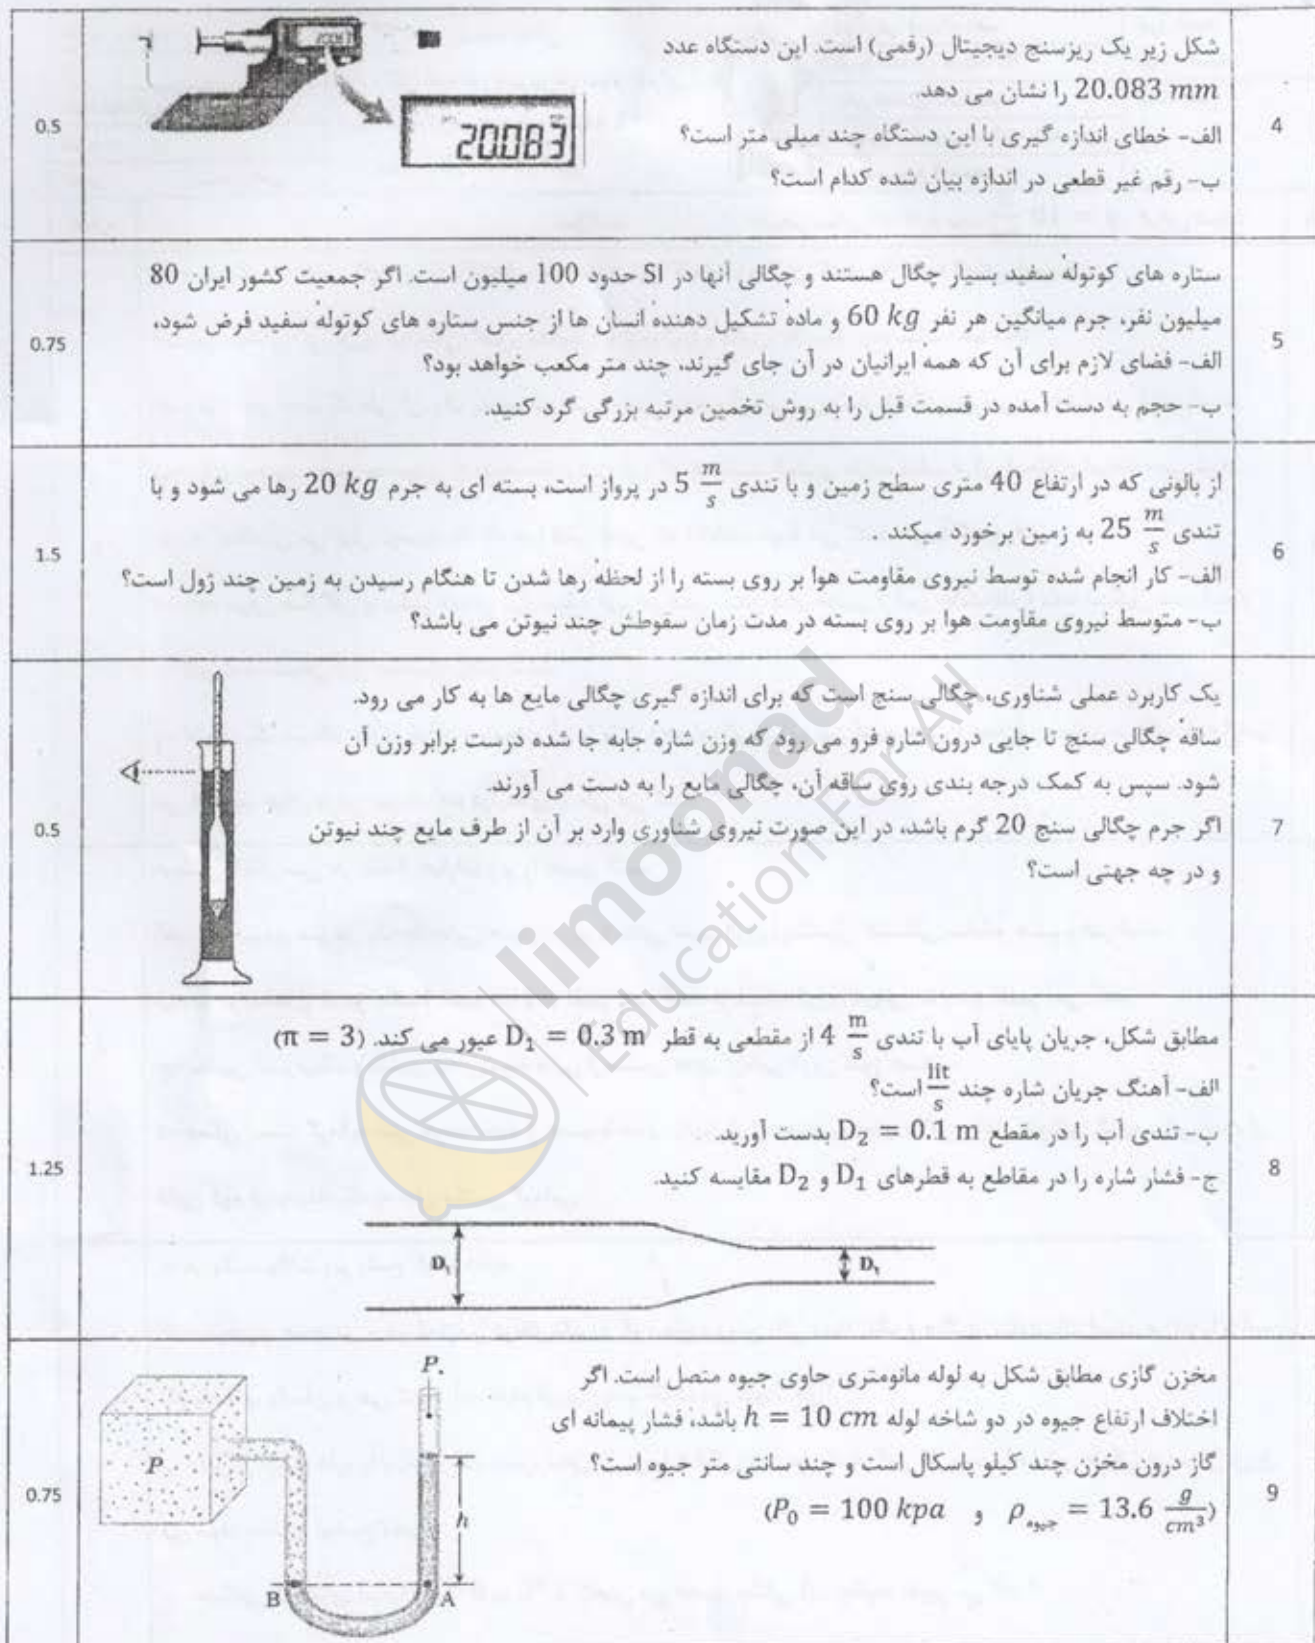 4
شکل زیر یک ریزسنج دیجیتال (رقمی) است. این دستگاه عدد
20.083 mm را نشان می دهد.
الف- خطای اندازه گیری با این دستگاه چند میلی متر است؟
ب- رقم غیر قطعی در اندازه بیان شده کدام است؟
20.083
0.5
5
ستاره های کوتولهٔ سفید بسیار چگال هستند و چگالی آنها در SI حدود 100 میلیون است. اگر جمعیت کشور ایران 80
میلیون نفر، جرم میانگین هر نفر 60 kg و مادهٔ تشکیل دهندهٔ انسان ها از جنس ستاره های کوتولهٔ سفید فرض شود،
الف- فضای لازم برای آن که همهٔ ایرانیان در آن جای گیرند، چند متر مکعب خواهد بود؟
ب- حجم به دست آمده در قسمت قبل را به روش تخمین مرتبه بزرگی گرد کنید.
0.75
6
از بالونی که در ارتفاع 40 متری سطح زمین و با تندی 5 m/s در پرواز است، بسته ای به جرم 20 kg رها می شود و با
تندی 25 m/s به زمین برخورد میکند .
الف- کار انجام شده توسط نیروی مقاومت هوا بر روی بسته را از لحظهٔ رها شدن تا هنگام رسیدن به زمین چند ژول است؟
ب- متوسط نیروی مقاومت هوا بر روی بسته در مدت زمان سقوطش چند نیوتن می باشد؟
1.5
7
یک کاربرد عملی شناوری، چگالی سنج است که برای اندازه گیری چگالی مایع ها به کار می رود.
ساقهٔ چگالی سنج تا جایی درون شاره فرو می رود که وزن شارهٔ جابه جا شده درست برابر وزن آن
شود. سپس به کمک درجه بندی روی ساقه آن، چگالی مایع را به دست می آورند.
اگر جرم چگالی سنج 20 گرم باشد، در این صورت نیروی شناوری وارد بر آن از طرف مایع چند نیوتن
و در چه جهتی است؟
0.5
8
مطابق شکل، جریان پایای آب با تندی 4 m/s از مقطعی به قطر D₁ = 0.3 m عبور می کند. (π = 3)
الف- آهنگ جریان شاره چند lit/s است؟
ب- تندی آب را در مقطع D₂ = 0.1 m بدست آورید.
ج- فشار شاره را در مقاطع به قطرهای D₁ و D₂ مقایسه کنید.
D₁
D₂
1.25
9
مخزن گازی مطابق شکل به لوله مانومتری حاوی جیوه متصل است. اگر
اختلاف ارتفاع جیوه در دو شاخه لوله h = 10 cm باشد، فشار پیمانه ای
گاز درون مخزن چند کیلو پاسکال است و چند سانتی متر جیوه است؟
(P₀ = 100 kpa و ρجیوه = 13.6 g/cm³)
P.
P
h
B
A
0.75
limoonad
Education For All